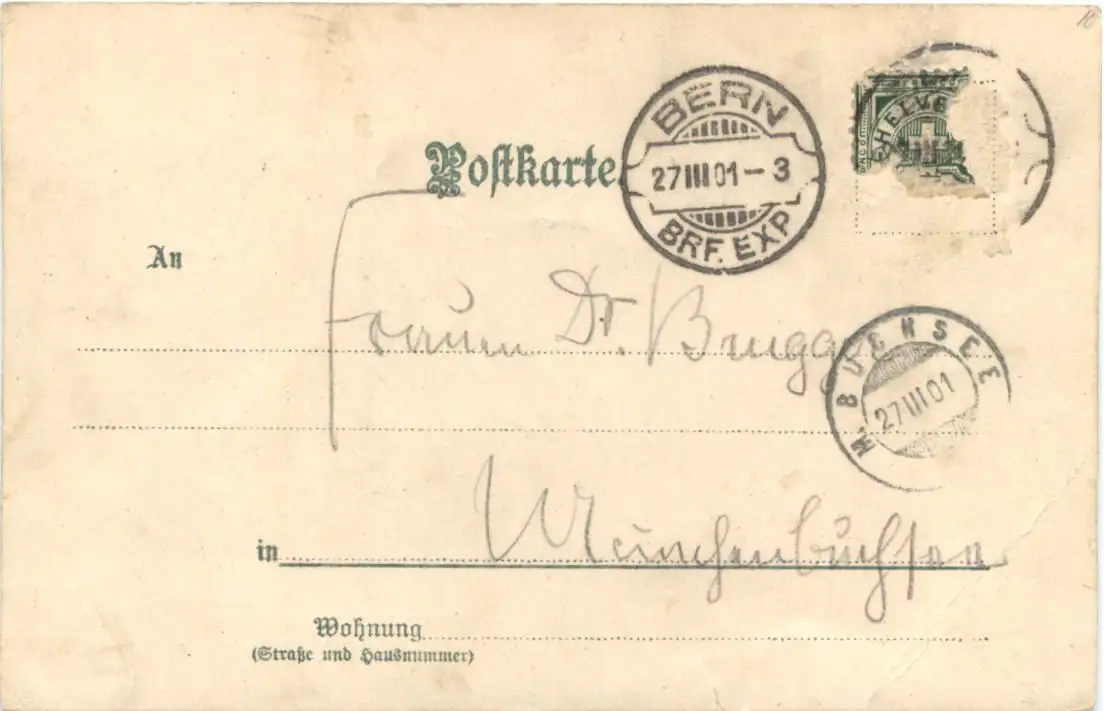 10
HELVE
BERN
27 III 01 – 3
BRF. EXP.
Postkarte
An
Frauen Dr. Brugg
M. BUCHSEE
27 III 01
in Münchenbuchsee
Wohnung
(Straße und Hausnummer)